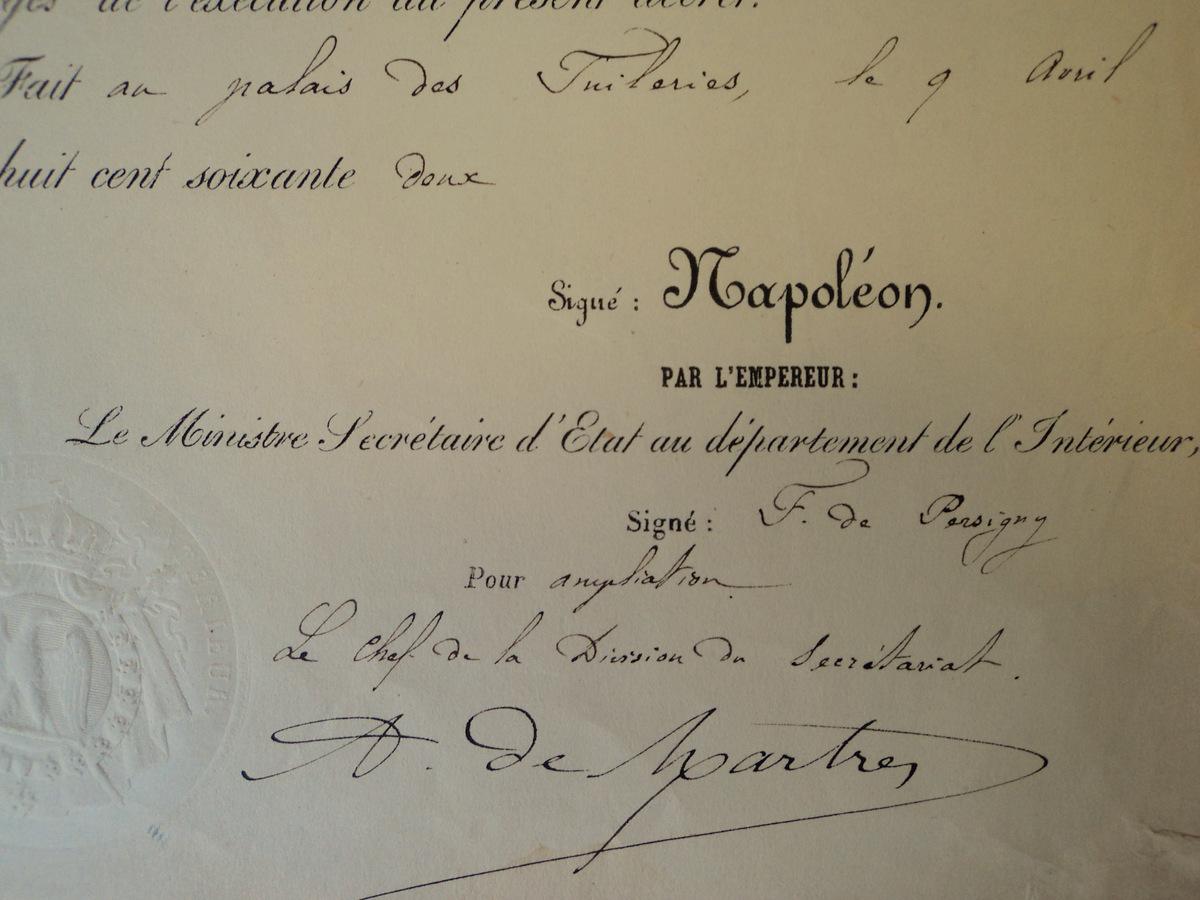 de l'exécution du présent décret.
Fait au palais des Tuileries, le 9 Avril
huit cent soixante deux
Signé : Napoléon.
PAR L'EMPEREUR :
Le Ministre Secrétaire d'Etat au département de l'Intérieur,
Signé : F. de Persigny
Pour ampliation
Le Chef de la Division du Secrétariat.
A. de Martres